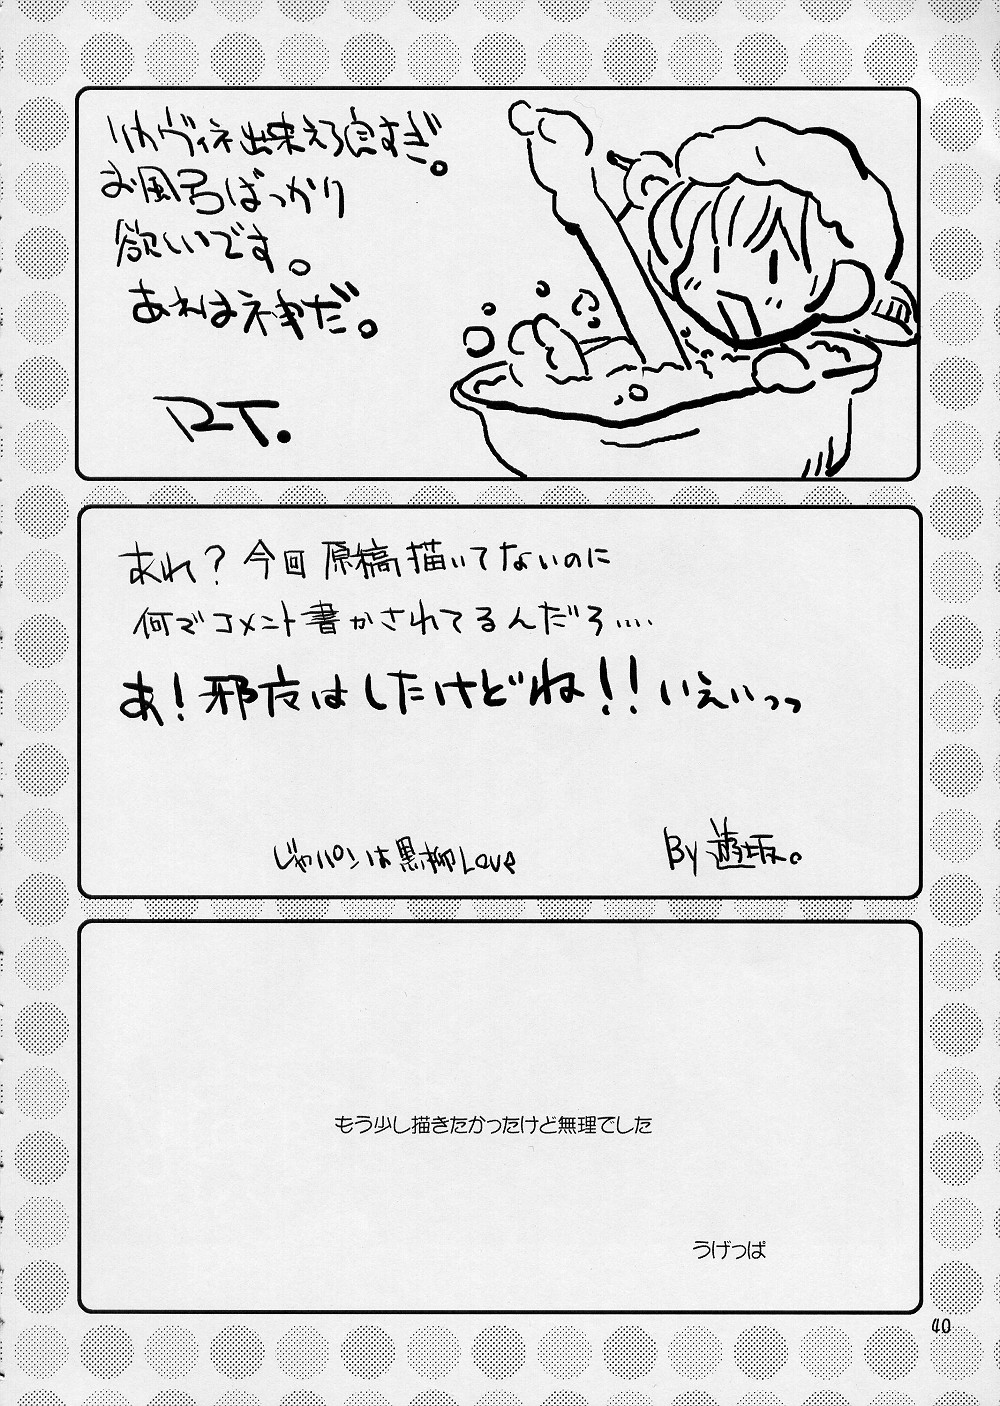 リカヴィネ出来えろ良すぎ。
お風呂ばっかり
欲しいです。
あれは神だ。
RT.
あれ？今回原稿描いてないのに
何でコメント書かされてるんだろ....
あ！邪魔はしたけどね！！いえぃっっ
じゃパンは黒柳Love
By 遊坂。
もう少し描きたかったけど無理でした
うげっぱ
40